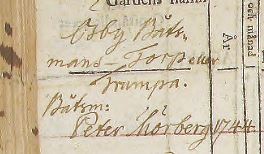 Gårdens namn
och månad
År
Osby Båts-
mans-Torp eller
Trumpa.
Båtsm:
Peter Morberg 1744